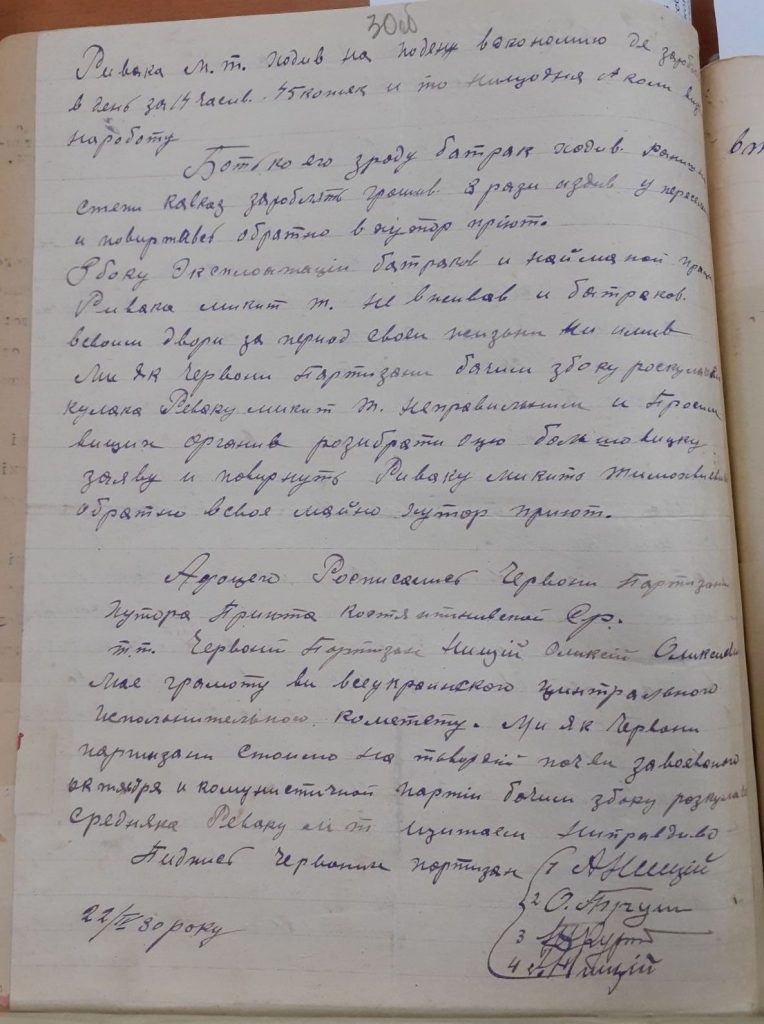 30об
Ривака М. Т. ходив на поденж в економию де
в день за 14 часив. 45 копеек и то нищодня А коли
на роботу
Ботько его зроду батрак ходив
степи кавказ зароблять грошив. 3 рази издив у
и повиртавсь обратно в хутор приют.
Збоку Эксплоатацій батраков и найманой
Ривака микит т. не вживав и батраков.
всвоим двори за период своей жизьни ни имив
Ми як Червони Партизани бачим збоку
кулака Реваку микит Т. неправильним и Просим
вищих органив розибрати оцю большовицку
заяву и повирнуть Риваку микиту
обратно всвое майно хутор приют.
Адоцего Росписались Червони Партизани
Хутора Приюта Костянтиновской Ср.
т.т. Червоний Партизан Нищій Оликсій
Мае грамоту ви всеукраинского центрального
исполнительного кометету. Ми як Червони
партизани стоимо на твердій почви завоеваного
октября и комунистичной партіи бочим збоку
средняка Реваку М Т щитаем ниправдиво
Пидпись Червоних партизан
1 А Нищій
2 О.
3
4 Нищій
22/IV 30 року